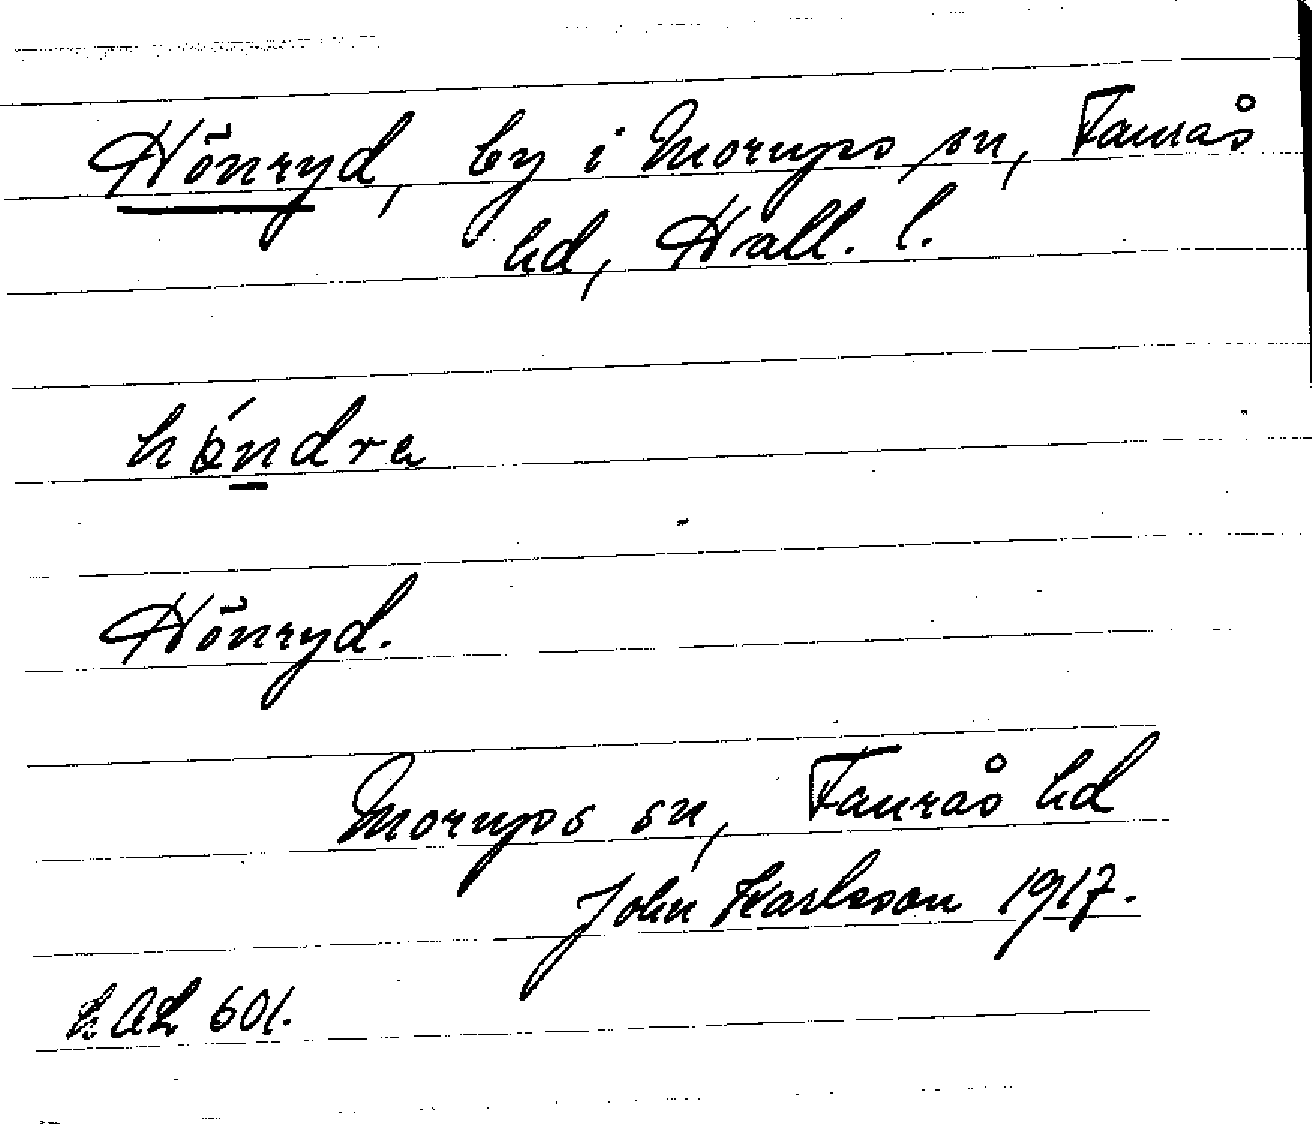 Hönryd, by i Morups sn, Faurås
hd, Hall. l.
höndra
Hönryd.
Morups sn, Faurås hd
John Karlsson 1917.
LAL 601.